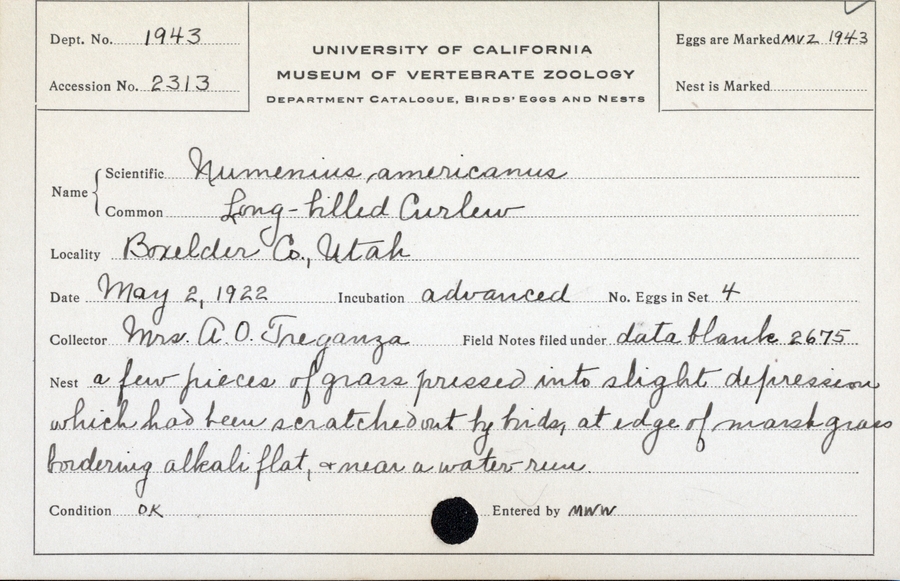 Dept. No. 1943
Accession No. 2313
UNIVERSITY OF CALIFORNIA
MUSEUM OF VERTEBRATE ZOOLOGY
DEPARTMENT CATALOGUE, BIRDS' EGGS AND NESTS
Eggs are Marked MVZ 1943
Nest is Marked
Name { Scientific Numenius americanus
Common Long-billed Curlew
Locality Boxelder Co., Utah
Date May 2, 1922 Incubation advanced No. Eggs in Set 4
Collector Mrs. A. O. Treganza Field Notes filed under data blank 2675
Nest a few pieces of grass pressed into slight depression
which had been scratched out by birds, at edge of marsh grass
bordering alkali flat, & near a water run.
Condition OK Entered by MWW